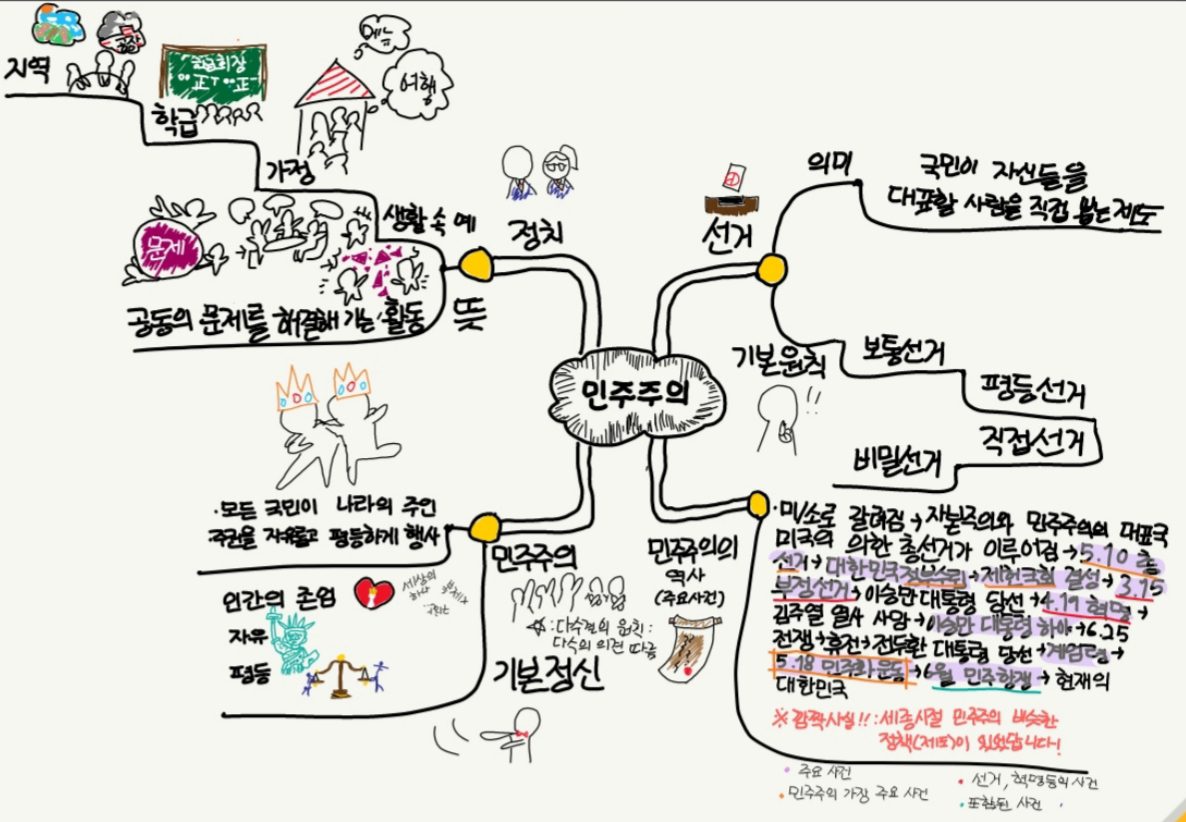 민주주의
정치
생활 속 예
지역
공장
학급
학급회장
正丅 正
가정
메뉴
여행
뜻
공동의 문제를 해결해 가는 활동
문제
선거
의미
국민이 자신들을
대표할 사람을 직접 뽑는 제도
기본 원칙
!!
보통선거
평등선거
직접선거
비밀선거
민주주의
·모든 국민이 나라의 주인
주권을 자유롭고 평등하게 행사
기본정신
인간의 존엄
자유
평등
세상의
하나
☆:다수결의 원칙:
다수의 의견 따름
민주주의의
역사
(주요사건)
·미/소로 갈려짐→자본주의와 민주주의의 대표국
미국의 의한 총선거가 이루어짐→5.10 총
선거→대한민국정부수립→제헌국회 결성→3.15
부정선거→이승만 대통령 당선→4.19 혁명→
김주열 열사 사망→이승만 대통령 하야→6.25
전쟁→휴전→전두환 대통령 당선→계엄령→
5.18 민주화운동→6월 민주항쟁→현재의
대한민국
※깜짝사실!!:세종시절 민주주의 비슷한
정책(제도)이 있었답니다!
· 주요 사건
· 민주주의 가장 주요 사건
· 선거, 혁명등의 사건
· 포함된 사건